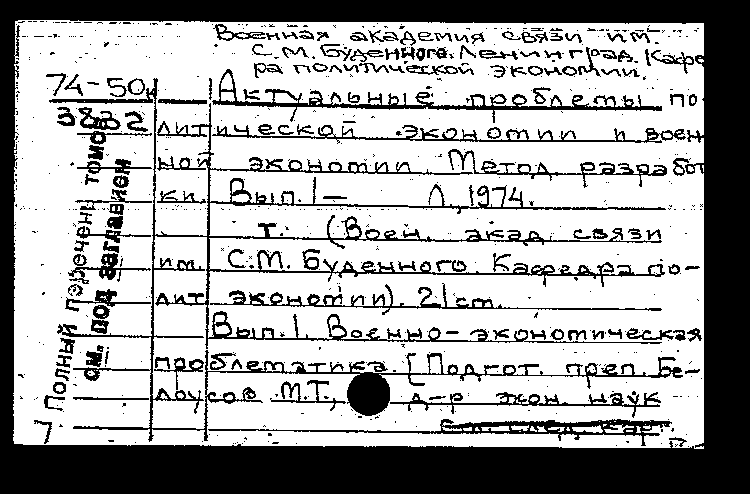 Военная академия связи им.
С.М. Буденного. Ленинград. Кафед
ра политической экономии.
74-50к
3832
Актуальные проблемы по-
литической экономии и воен
ной экономии. Метод. разработ
ки. Вып. 1— Л., 1974.
т. (Воен. акад. связи
им. С.М. Буденного. Кафедра по-
лит. экономии). 21 см.
Вып. 1. Военно-экономическая
проблематика. [Подгот. преп. Бе-
лоусов М.Т., д-р экон. наук
см. след. карт.
7
Полный перечень томов
см. под заглавием